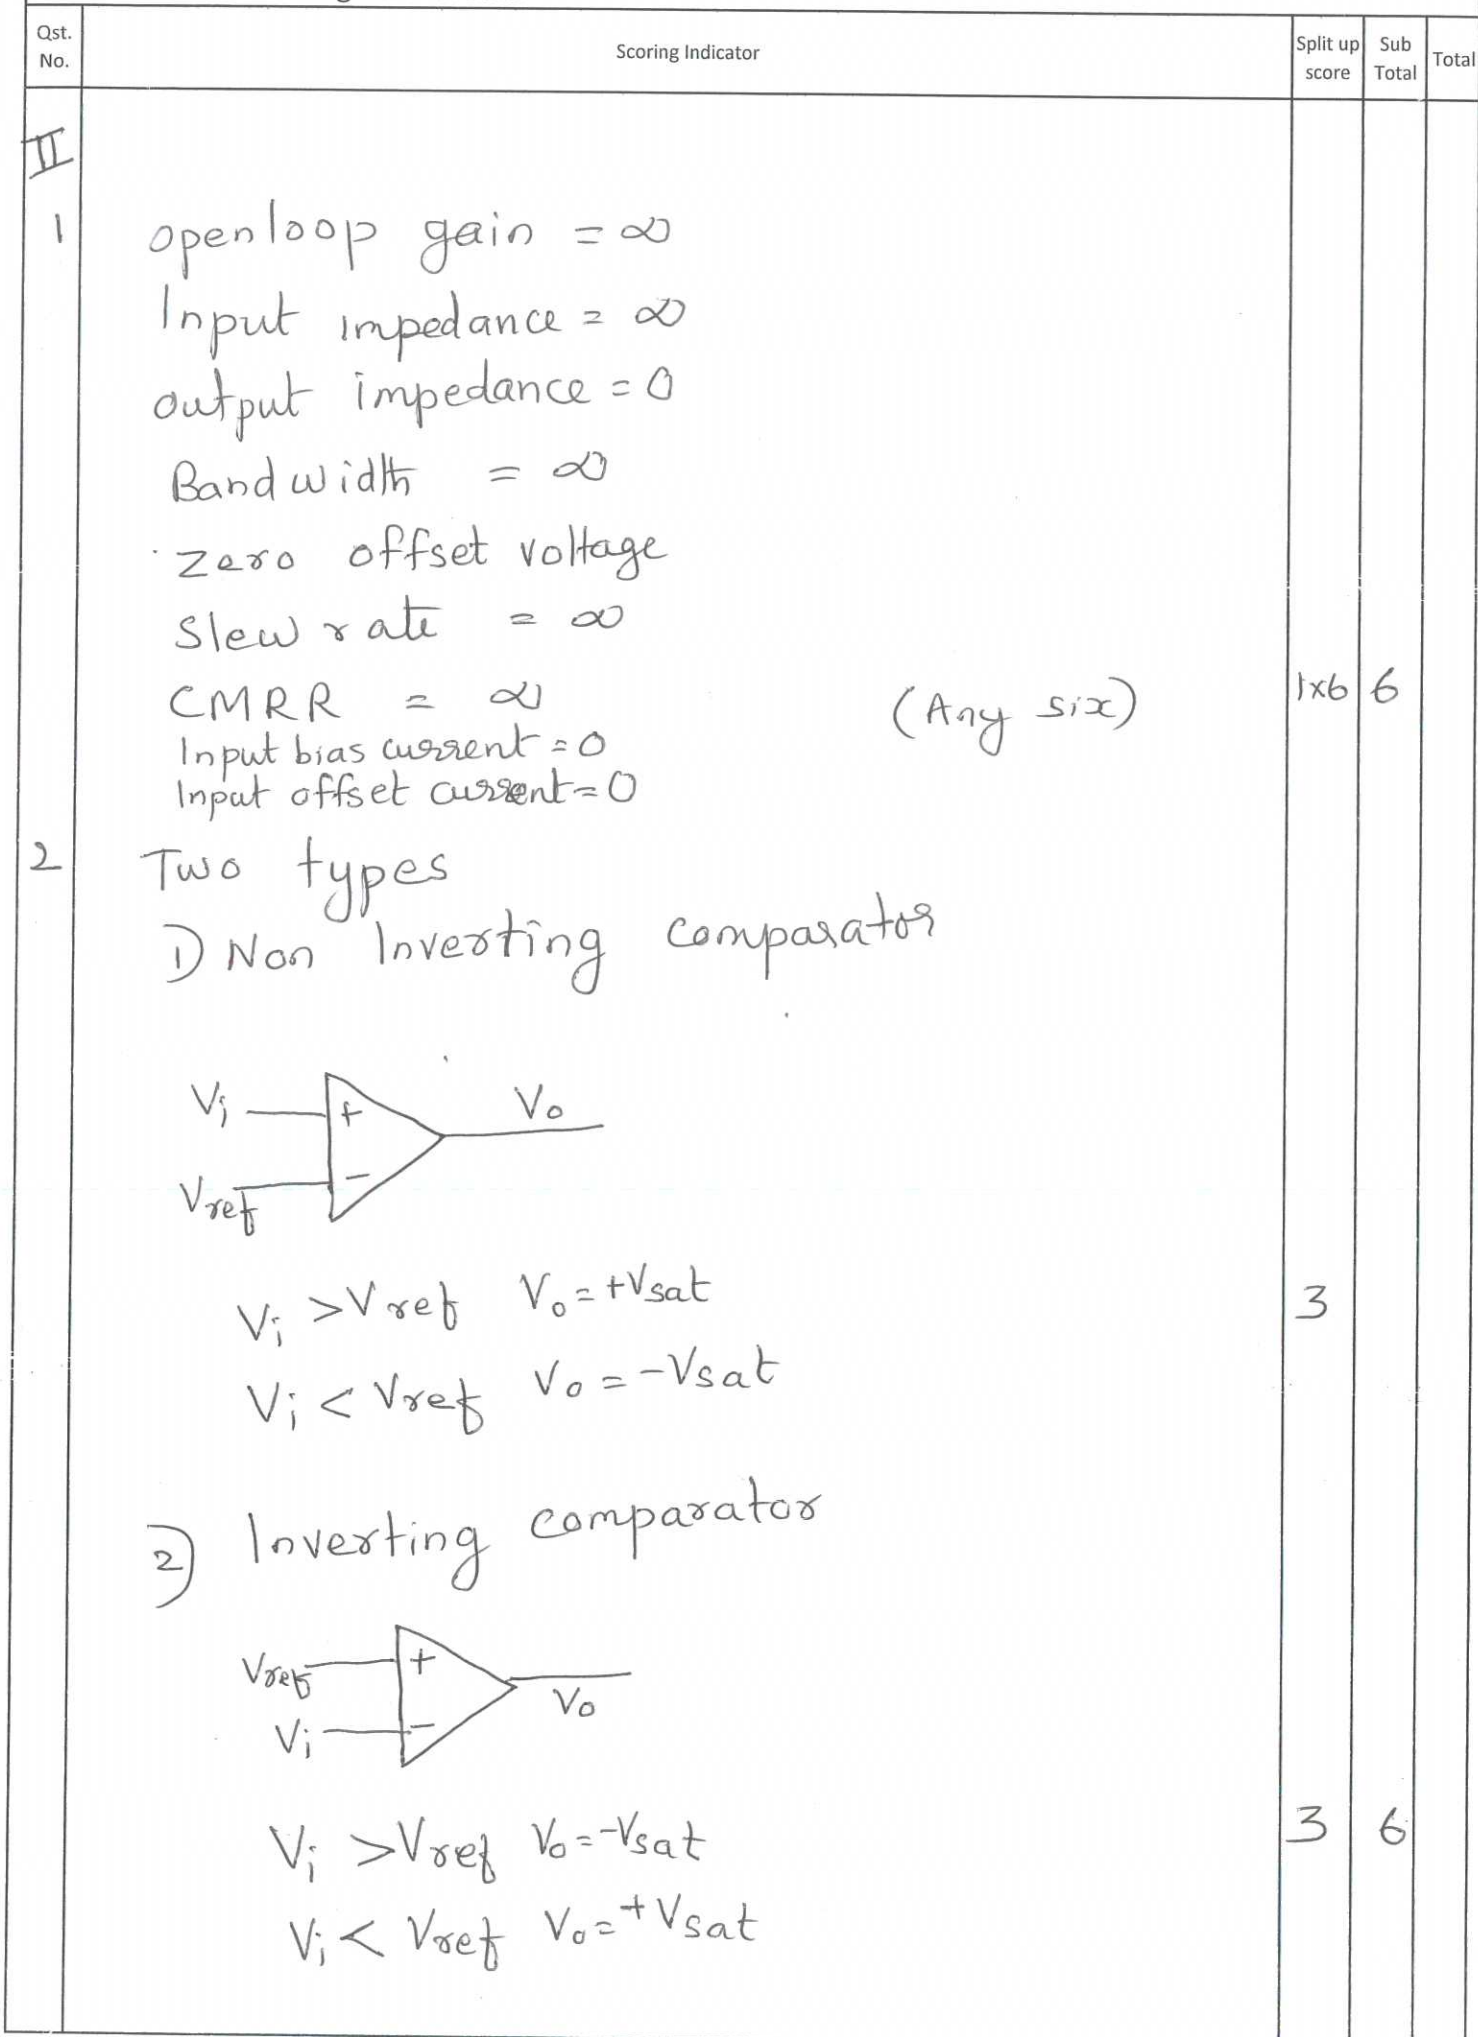 Qst. No.
Scoring Indicator
Split up score
Sub Total
Total
II
1
open loop gain = ∞
Input impedance = ∞
output impedance = 0
Bandwidth = ∞
zero offset voltage
Slew rate = ∞
CMRR = ∞ (Any six) 1x6 6
Input bias current = 0
Input offset current = 0
2 Two types
1) Non Inverting comparator
Vi + Vo
Vref -
Vi > Vref Vo = +Vsat 3
Vi < Vref Vo = -Vsat
2) Inverting comparator
Vref +
Vo
Vi -
Vi > Vref Vo = -Vsat 3 6
Vi < Vref Vo = +Vsat